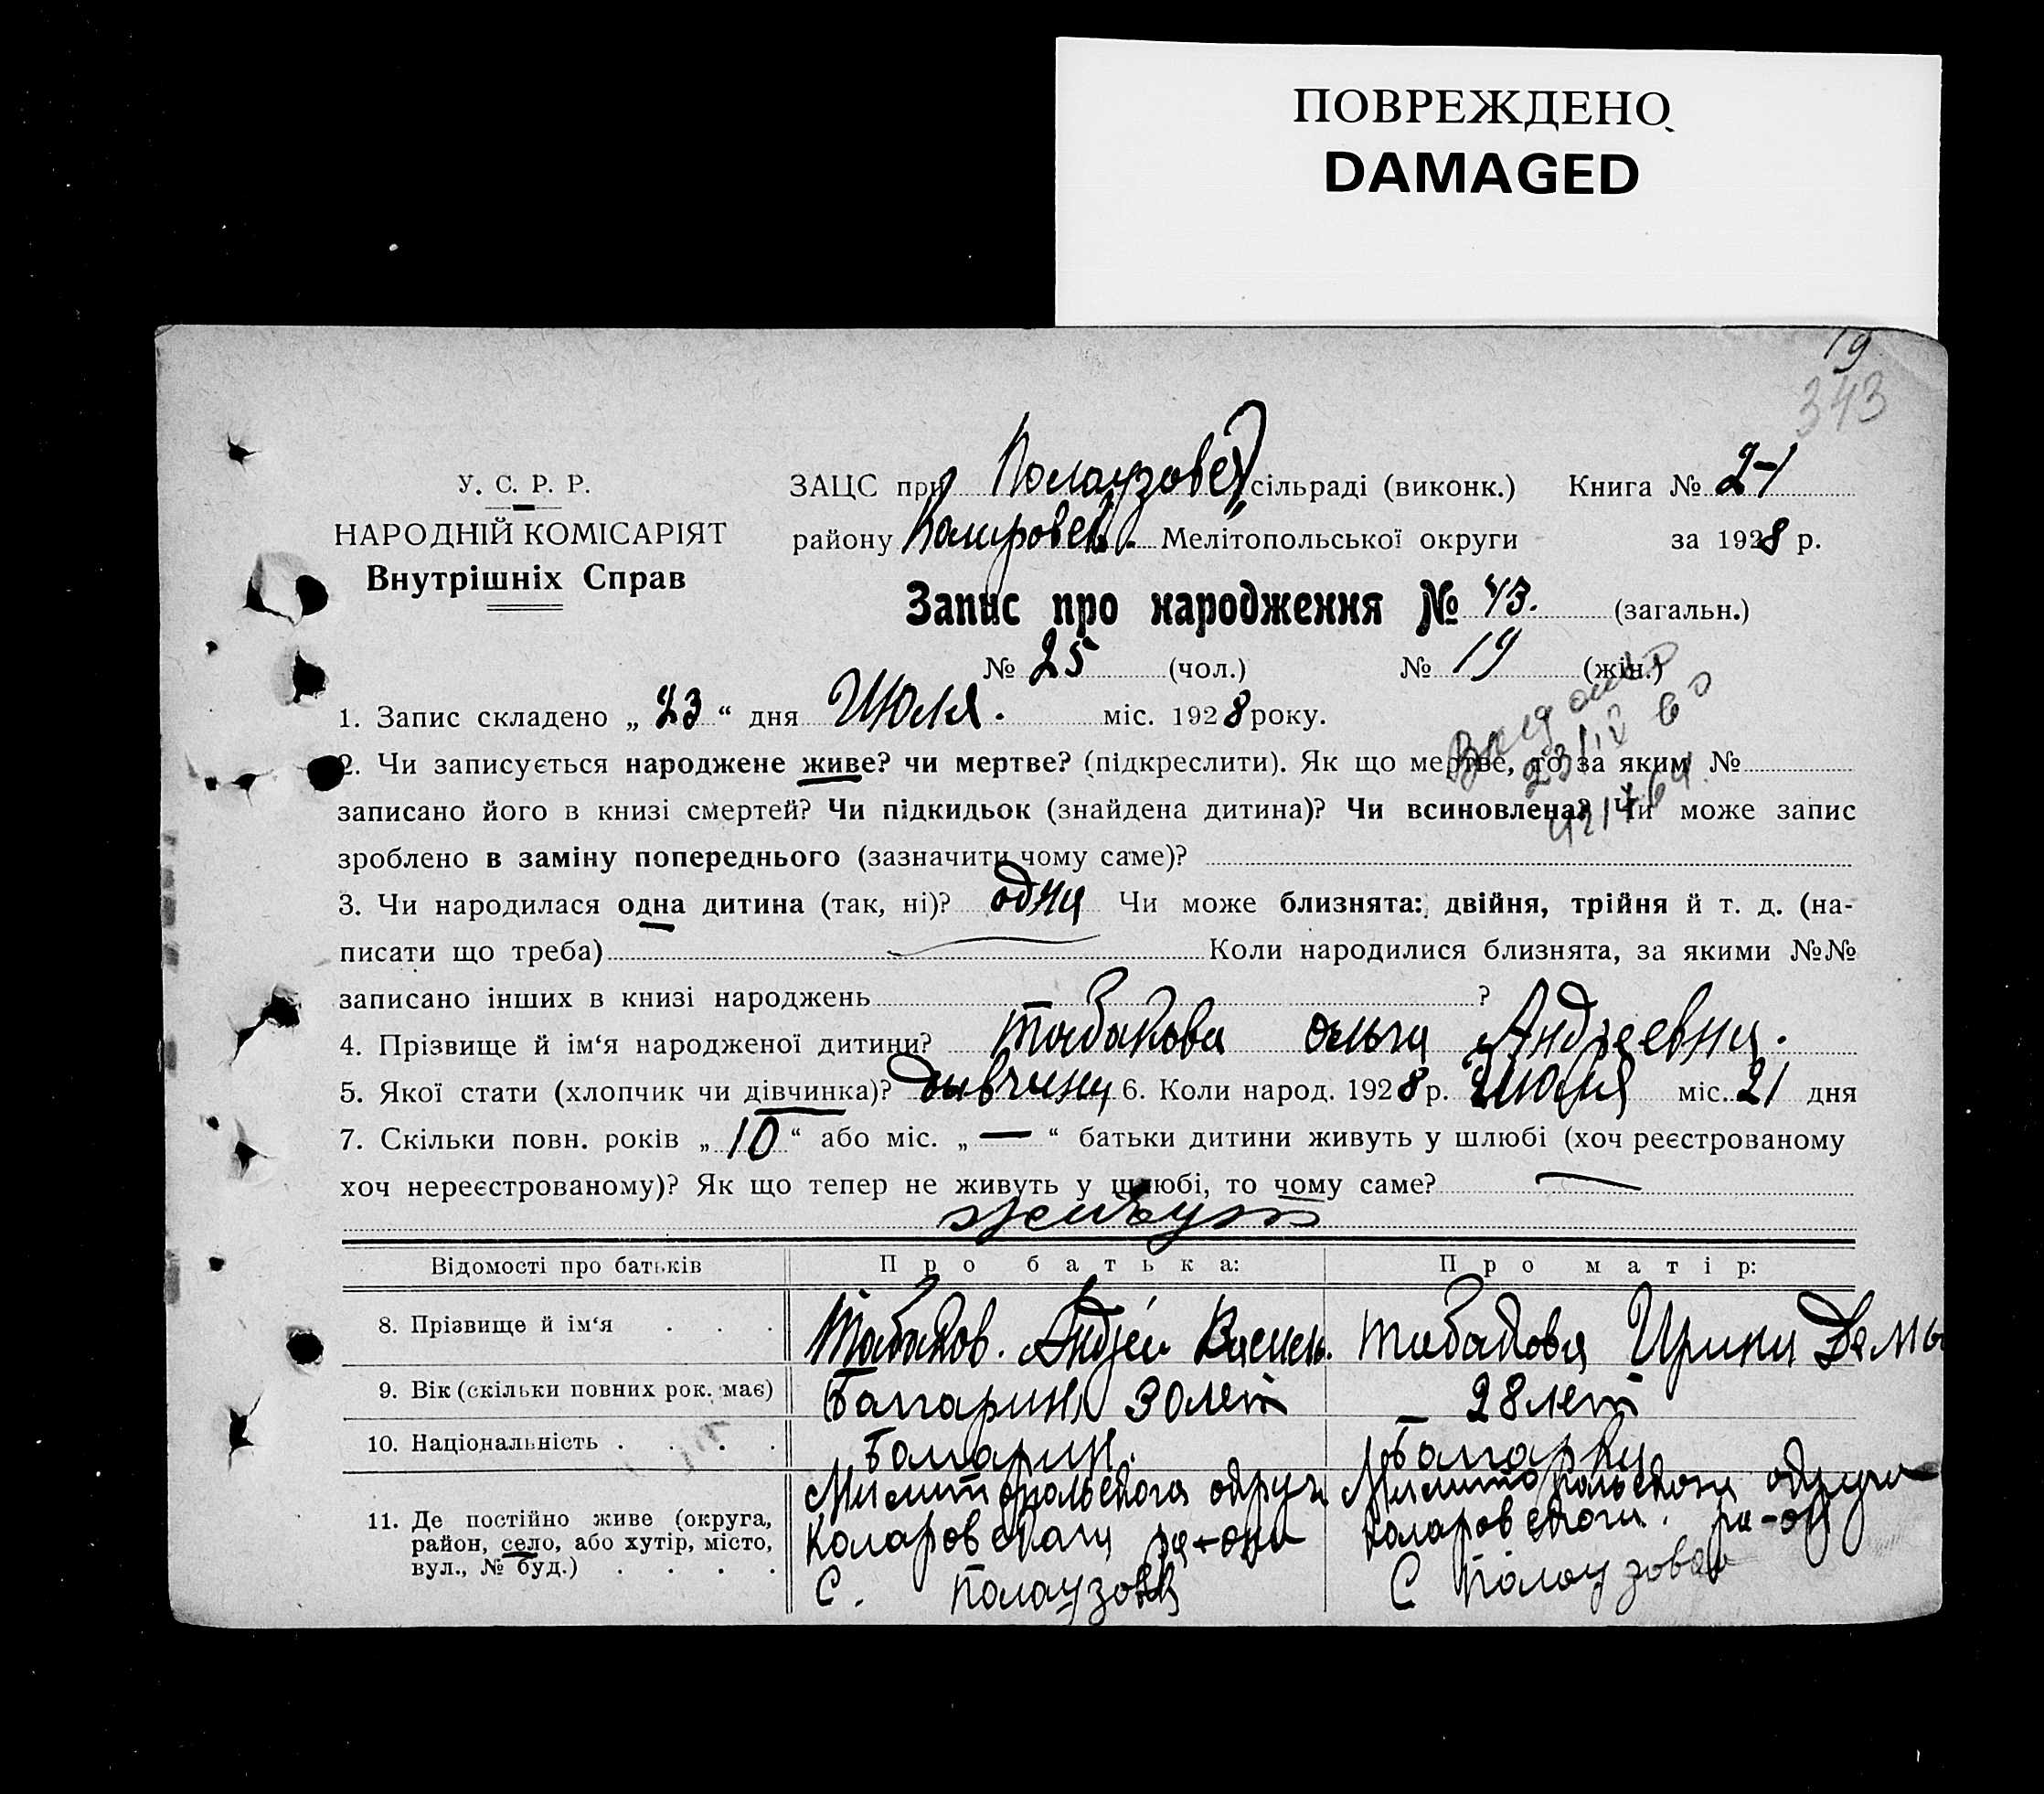 ПОВРЕЖДЕНО
DAMAGED
19
343
У. С. Р. Р.
НАРОДНІЙ КОМІСАРІЯТ
Внутрішніх Справ
ЗАЦС при Полаузовск сільраді (виконк.) Книга № 2-1
району Мелітопольської округи за 1928 р.
Запис про народження № 43. (загальн.)
№ 25 (чол.) № 19 (жін.)
1. Запис складено „ 23 “ дня Июля. міс. 1928 року.
2. Чи записується народжене живе? чи мертве? (підкреслити). Як що мертве, то за яким №
записано його в книзі смертей? Чи підкидьок (знайдена дитина)? Чи всиновлена? Чи може запис
зроблено в заміну попереднього (зазначити чому саме)?
3. Чи народилася одна дитина (так, ні)? одна Чи може близнята: двійня, трійня й т. д. (на-
писати що треба) Коли народилися близнята, за якими №№
записано інших в книзі народжень ?
4. Прізвище й ім‘я народженої дитини? Табакова Ольга Андреевна.
5. Якої стати (хлопчик чи дівчинка)? дивчина 6. Коли народ. 1928 р. Июля міс. 21 дня
7. Скільки повн. років „ 10 “ або міс. „ — “ батьки дитини живуть у шлюбі (хоч реєстрованому
хоч нереєстрованому)? Як що тепер не живуть у шлюбі, то чому саме? —
живут
Відомості про батьків Про батька: Про матір:
8. Прізвище й ім‘я . . . Табаков. Андрей Табакова Ирина Демь
9. Вік (скільки повних рок. має) Болгарин 30 лет 28 лет
10. Національність . . . . Болгарин. Болгарка
11. Де постійно живе (округа,
район, село, або хутір, місто,
вул., № буд.) . . . .
Милитопольскога округа
Коларовскаги ра-она
С. Полаузовк
Милитопольскоги округи
Коларовскоги. ра-он
С Полоузовка